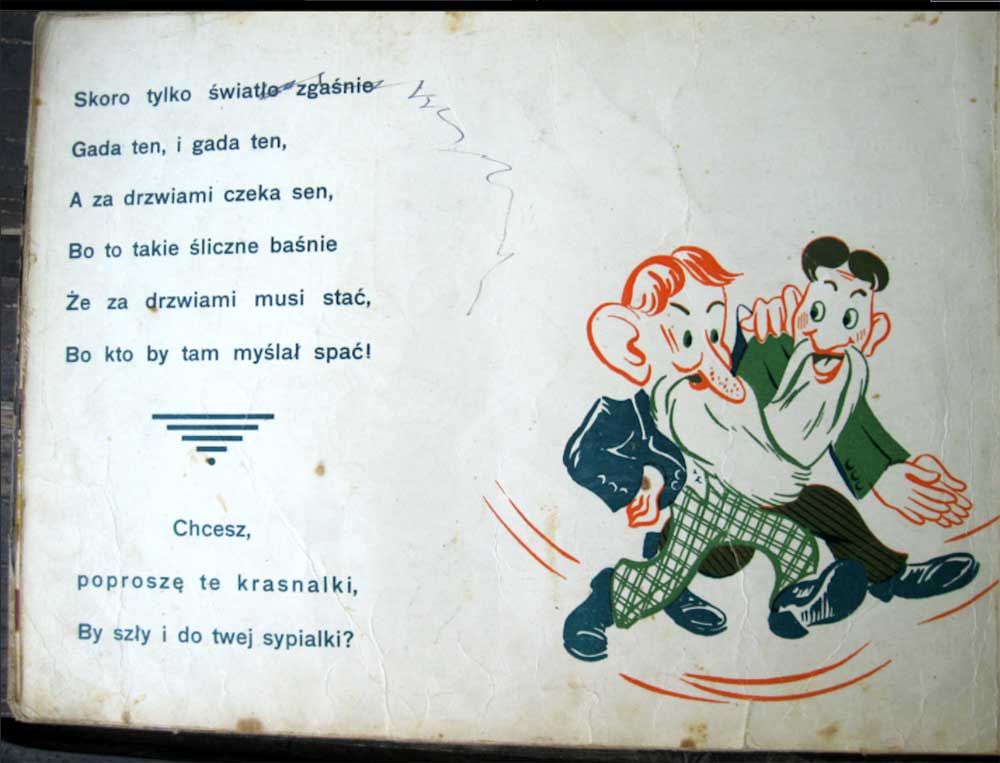 Skoro tylko światło zgaśnie
Gada ten, i gada ten,
A za drzwiami czeka sen,
Bo to takie śliczne baśnie
Że za drzwiami musi stać,
Bo kto by tam myślał spać!
Chcesz,
poproszę te krasnalki,
By szły i do twej sypialki?